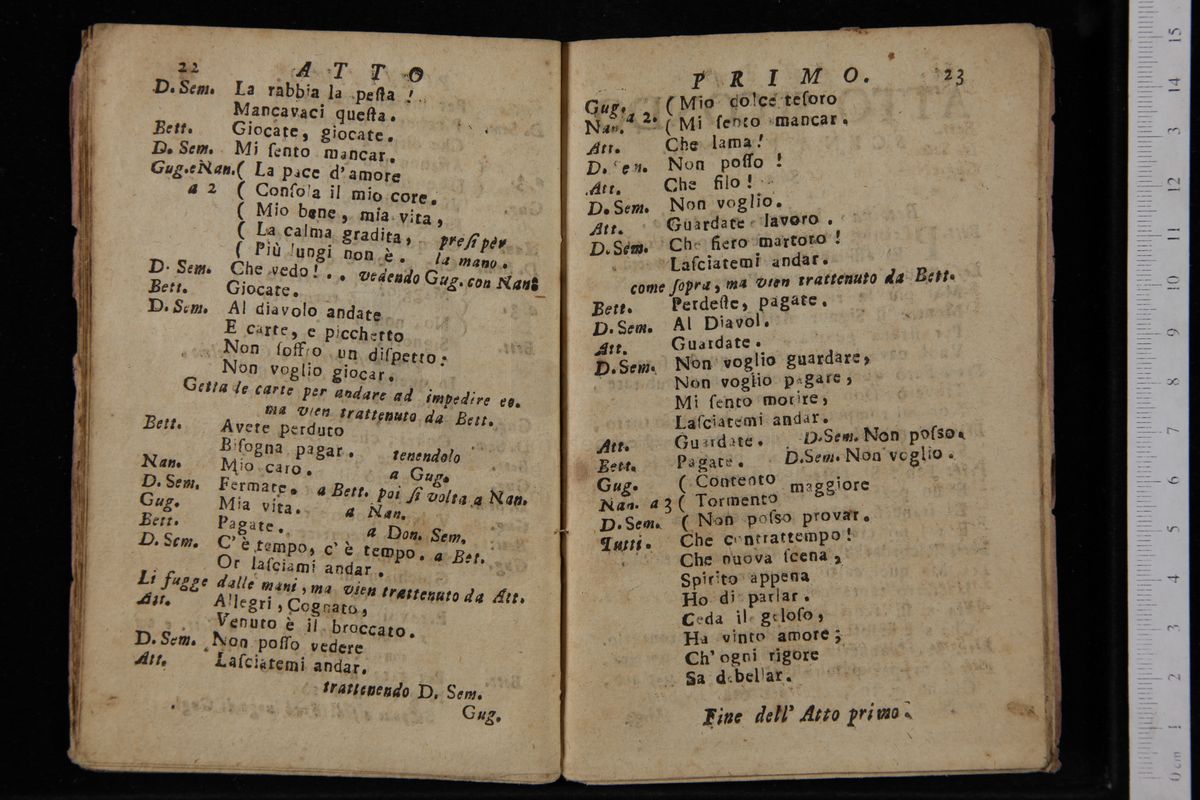 22 ATTO
D. Sem. La rabbia la peſta !
Mancavaci queſta.
Bett. Giocate, giocate.
D. Sem. Mi ſento mancar.
Gug. e Nan. ( La pace d'amore
a 2 ( Conſola il mio core.
( Mio bene, mia vita,
( La calma gradita, preſi per
( Più lungi non è. la mano.
D. Sem. Che vedo!.. vedendo Gug. con Nan.
Bett. Giocate.
D. Sem. Al diavolo andate
E carte, e picchetto
Non ſoffro un diſpetto:
Non voglio giocar.
Getta le carte per andare ad impedire ec.
ma vien trattenuto da Bett.
Bett. Avete perduto
Biſogna pagar. tenendolo
Nan. Mio caro. a Gug.
D. Sem. Fermate. a Bett. poi ſi volta a Nan.
Gug. Mia vita. a Nan.
Bett. Pagate. a Don. Sem.
D. Sem. C'è tempo, c'è tempo. a Bet.
Or laſciami andar.
Li fugge dalle mani, ma vien trattenuto da Att.
Att. Allegri, Cognato,
Venuto è il broccato.
D. Sem. Non poſſo vedere
Att. Laſciatemi andar.
trattenendo D. Sem.
Gug.
PRIMO. 23
Gug. ( Mio dolce teſoro
Nan. a 2. ( Mi ſento mancar.
Att. Che lama!
D. Sen. Non poſſo !
Att. Che filo!
D. Sem. Non voglio.
Att. Guardate lavoro.
D. Sem. Che fiero martoro!
Laſciatemi andar.
come ſopra, ma vien trattenuto da Bett.
Bett. Perdeſte, pagate.
D. Sem. Al Diavol.
Att. Guardate.
D. Sem. Non voglio guardare,
Non voglio pagare,
Mi ſento morire,
Laſciatemi andar.
Att. Guardate. D. Sem. Non poſso.
Bett. Pagate. D. Sem. Non voglio.
Gug. ( Contento maggiore
Nan. a 3 ( Tormento
D. Sem. ( Non poſso provar.
Tutti. Che contrattempo!
Che nuova ſcena,
Spirito appena
Ho di parlar.
Ceda il geloſo,
Ha vinto amore;
Ch'ogni rigore
Sa debellar.
Fine dell' Atto primo.